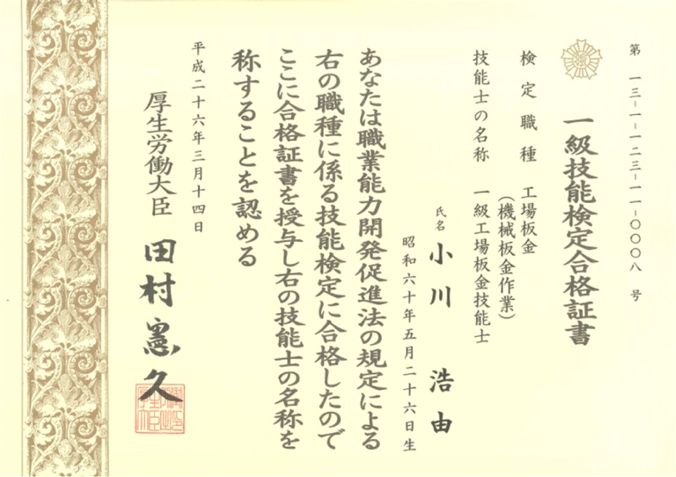 第 一三-一-一二三-一一-〇〇〇八 号
一級技能検定合格証書
検定職種 工場板金
（機械板金作業）
技能士の名称 一級工場板金技能士
氏名 小川 浩由
昭和六十年五月二十六日生
あなたは職業能力開発促進法の規定による
右の職種に係る技能検定に合格したので
ここに合格証書を授与し右の技能士の名称を
称することを認める
平成二十六年三月十四日
厚生労働大臣 田村憲久